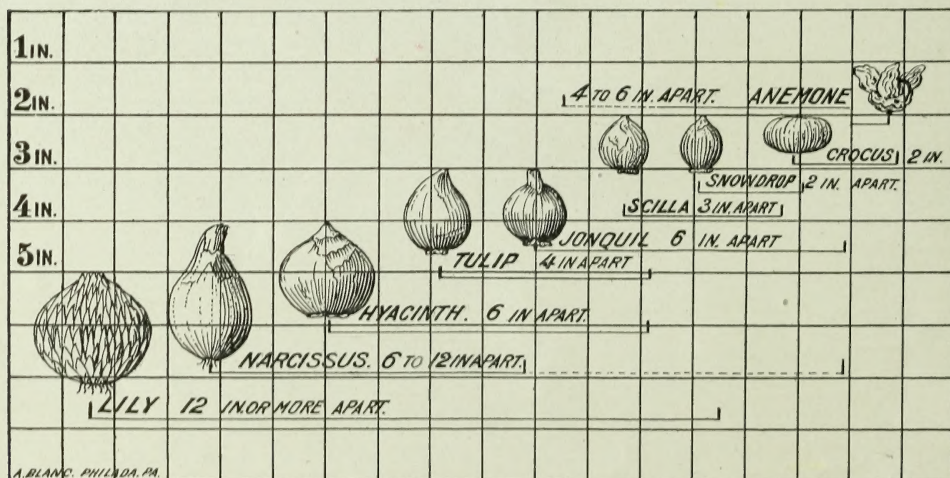 1 IN.
2 IN.
4 TO 6 IN. APART. ANEMONE
3 IN.
CROCUS 2 IN.
SNOWDROP 2 IN. APART.
4 IN.
SCILLA 3 IN. APART
JONQUIL 6 IN. APART
5 IN.
TULIP 4 IN APART
HYACINTH. 6 IN APART.
NARCISSUS. 6 TO 12 IN APART.
LILY 12 IN. OR MORE APART.
A. BLANC. PHILADA. PA.